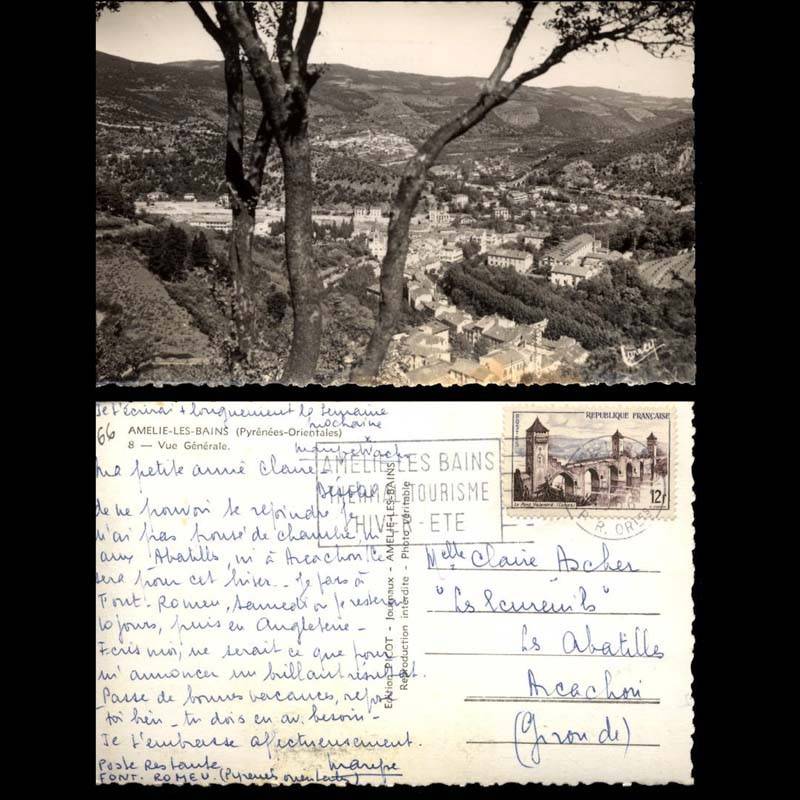 Je t'écrirai + longuement la semaine
prochaine
66
AMELIE-LES-BAINS (Pyrénées-Orientales)
8 — Vue Générale.
Ma petite amie Claire -
Désolée
de ne pouvoir te rejoindre, je
n'ai pas trouvé de chambre, ni
aux Abatilles, ni à Arcachon. Ce
sera pour cet hiver - Je pars à
Font-Romeu, samedi où je resterai
10 jours, puis en Angleterre -
Ecris moi, ne serait ce que pour
m'annoncer un brillant résultat.
Passe de bonnes vacances, repose
toi bien - tu dois en av. besoin -
Je t'embrasse affectueusement.
Poste Restante
FONT. ROMEU (Pyrénées orientales)
Edition PILOT - Journaux - AMELIE-LES-BAINS
Reproduction interdite - Photo véritable
AMELIE LES BAINS
THERMALISME TOURISME
HIVER-ETE
REPUBLIQUE FRANÇAISE
POSTES
12F
Le Pont Valentré (Cahors)
Melle Claire Ascher
"Les Ecureuils"
Les Abatilles
Arcachon
(Gironde)